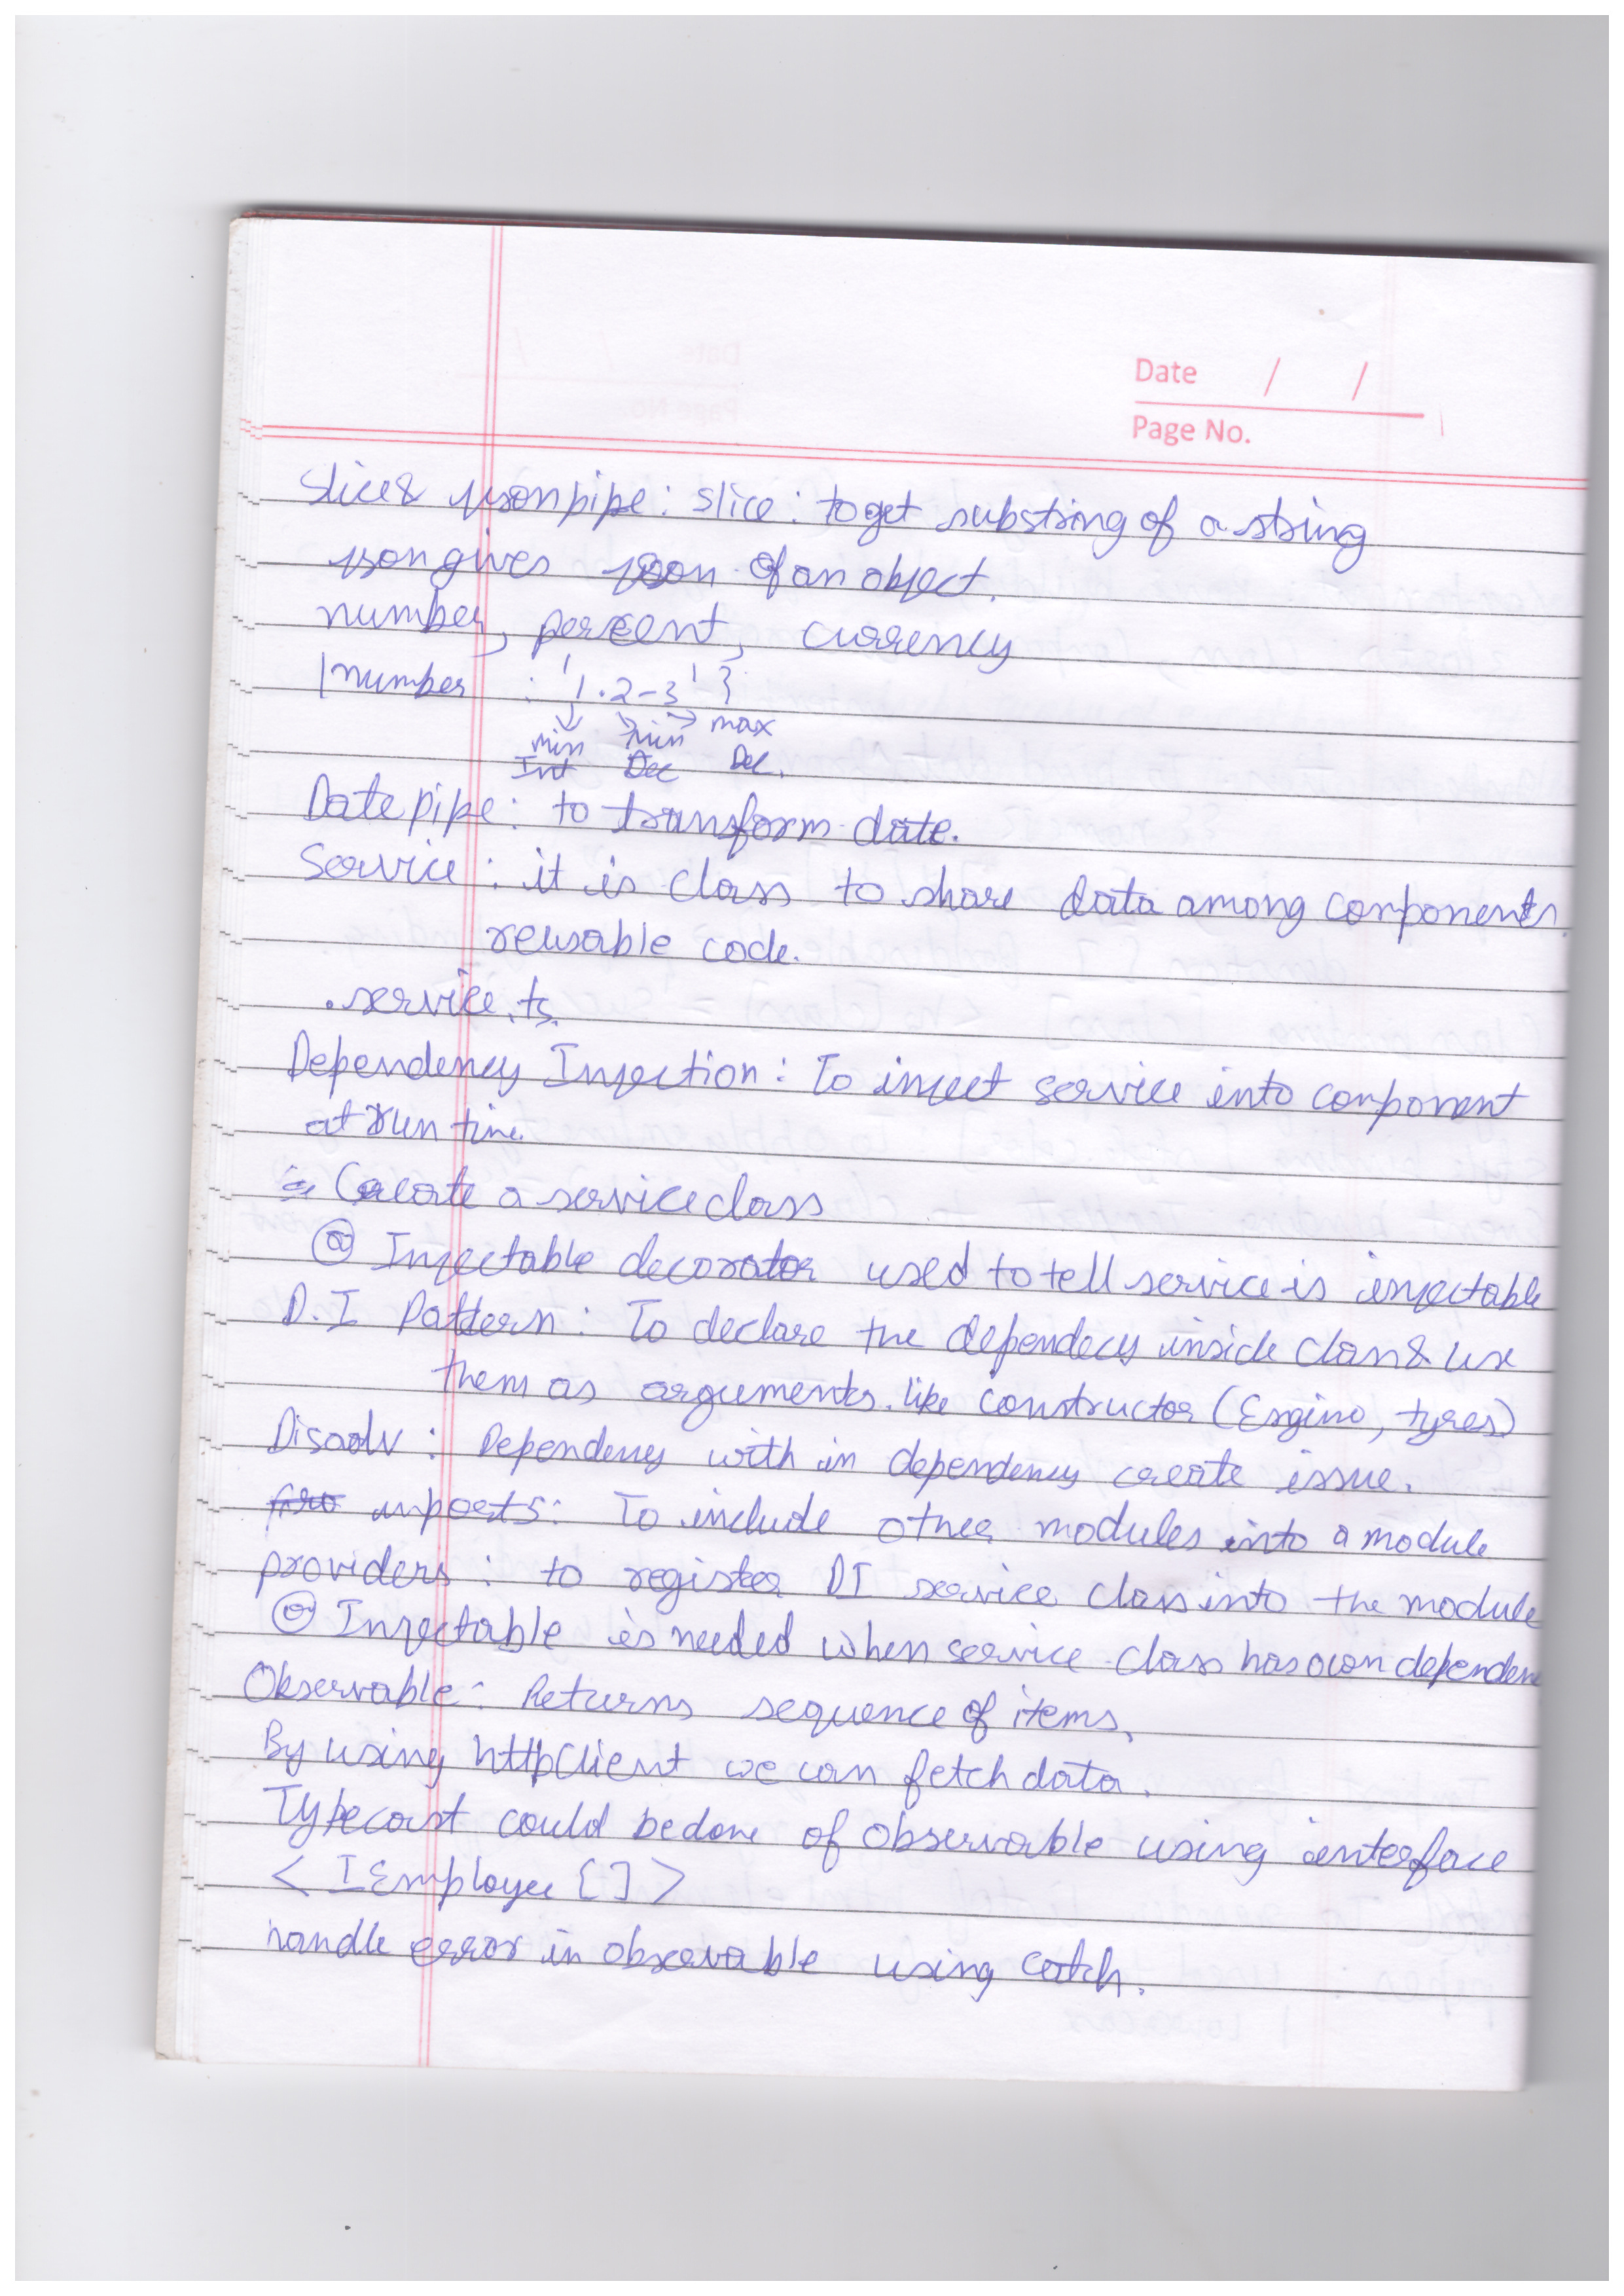 Date / /
Page No.
Slice & json pipe : slice : to get substring of a string
json gives json of an object.
number, percent, currency
| number : '1.2-3' }
min min max
Int Dec Dec.
Date pipe : to transform date.
Service : it is class to share data among components.
reusable code.
.service.ts
Dependency Injection : To inject service into component
at run time
Create a service class
@ Injectable decorator used to tell service is injectable
D.I Pattern : To declare the dependecy inside class & use
them as arguments. like constructor (Engine, tyres)
Disadv : Dependency with in dependency create issue.
imports : To include other modules into a module
providers : to register DI service class into the module
@ Injectable is needed when service class has own dependen
Observable : Returns sequence of items.
By using httpClient we can fetch data.
Typecast could be done of observable using interface
< IEmployee [] >
handle error in observable using catch.